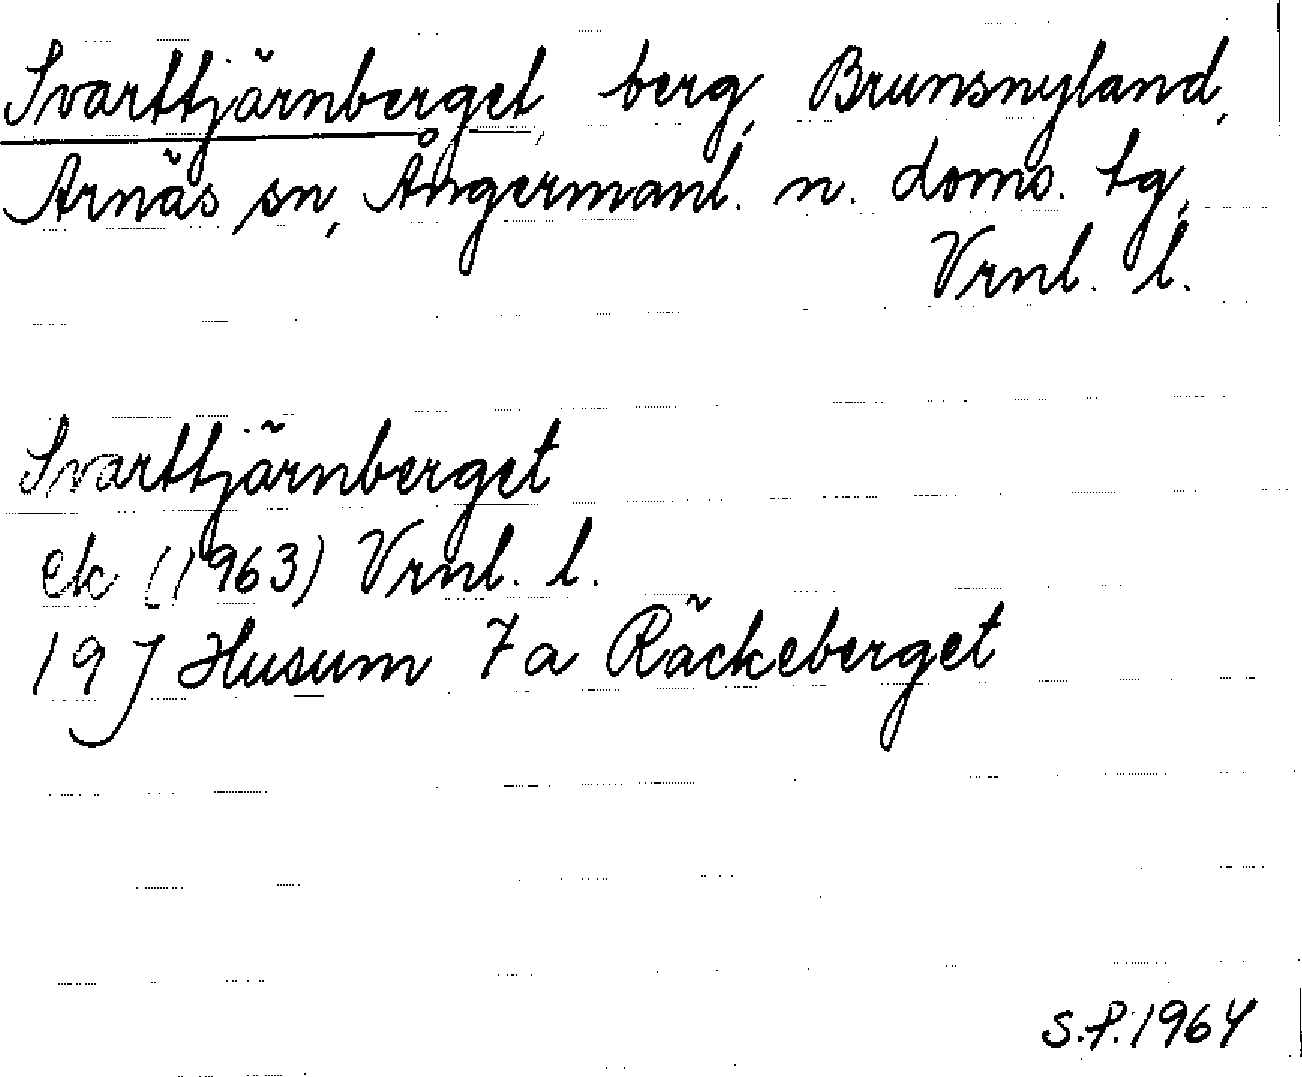 Svarttjärnberget, berg, Brunsnyland,
Arnäs sn, Ångermanl. n. doms. tg,
Vrnl. l.
Svarttjärnberget
ek (1963) Vrnl. l.
19 J Husum 7a Räckeberget
S.P. 1964